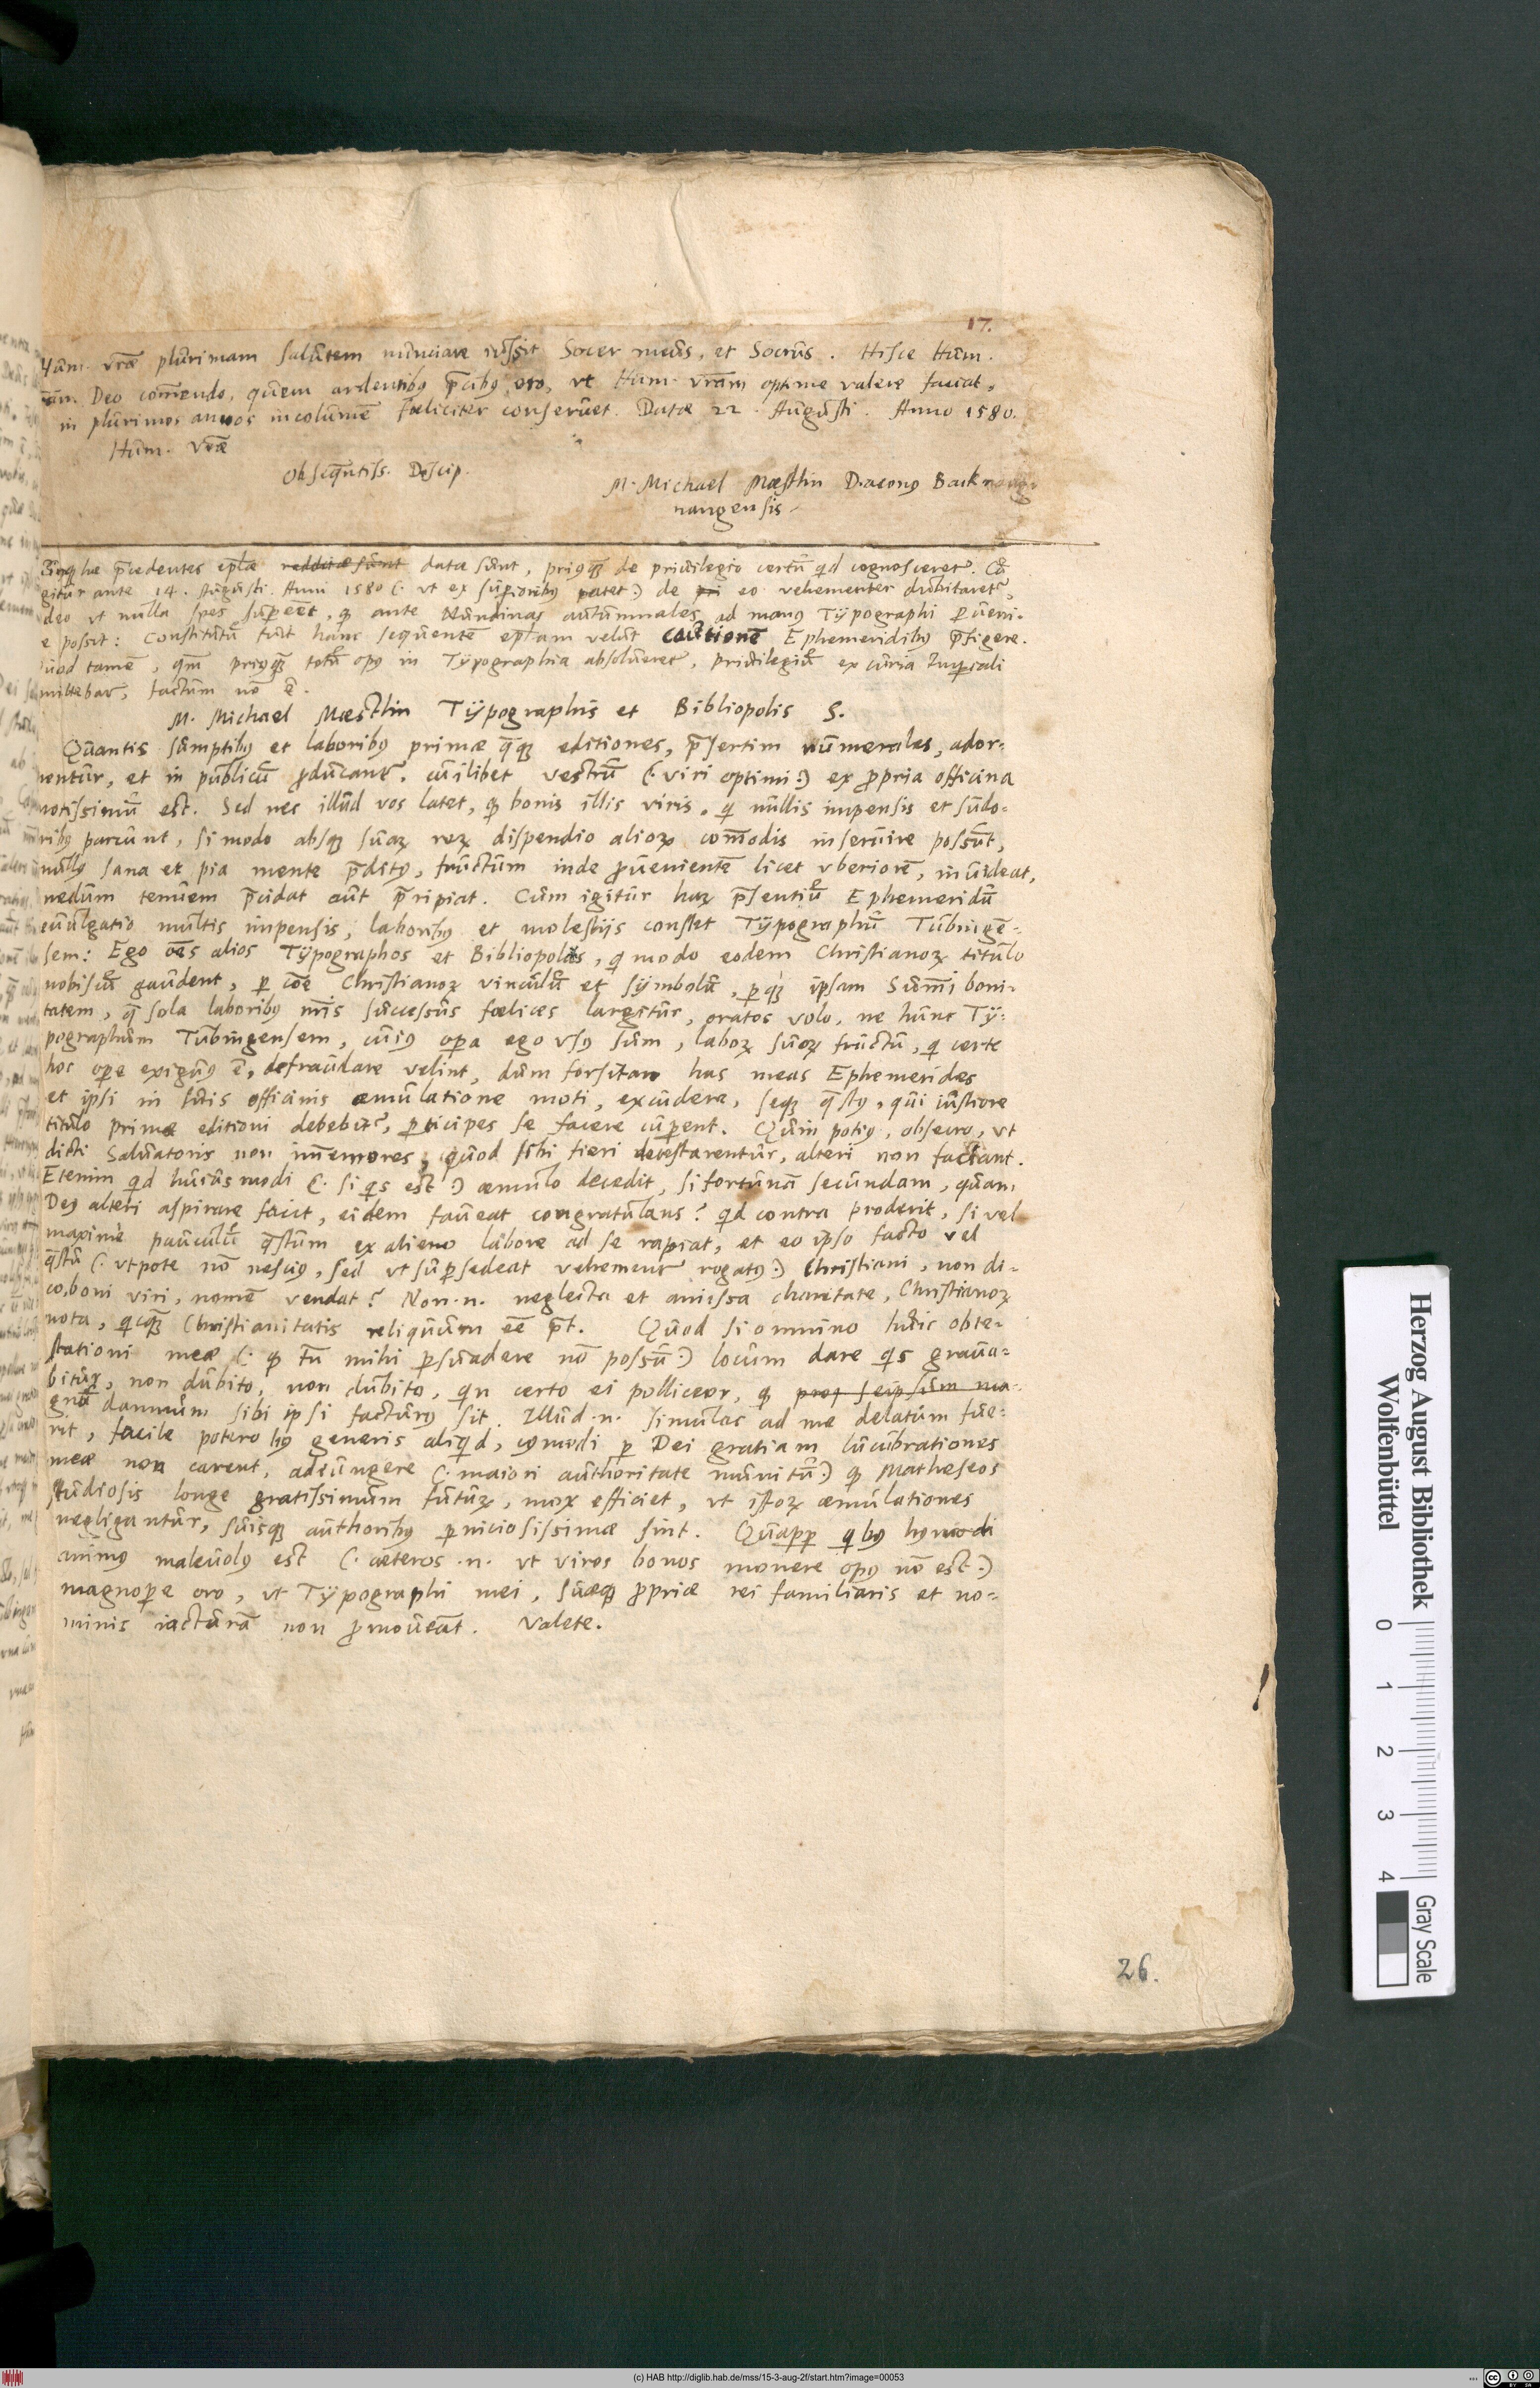 17.
Hum. vrāe plurimam salutem nunciare iussit Socer meus, et Socrus. Hisce Hum.
Deo com̄endo, quem ardentibꝰ p̄cibꝰ oro, vt Hum. vrām optime valere faciat,
in plurimos annos incolumē fœliciter conseruet. Datæ 22. Augusti. Anno 1580.
Hum. vrāe
Obsequentiss. Discip.
M. Michael Mæstlin Diaconꝰ Backnang-
nangensis.
hæ p̄cedentes ep̄læ redditæ sunt datæ sunt, priꝰqꝫ de priuilegio certū qd cognosceret᷑. Cū
gitur ante 14. Augusti. Anni 1580 (: vt ex superioribꝰ patet :) de pri eo vehementer dubitaret᷑,
deo vt nulla spes supeēt, qꝫ ante Nundinas autumnales ad manꝰ Typographi ꝑueni-
e possit: Constitutū fuit hanc sequentē ep̄lam velut cautionē Ephemeridibꝰ p̄figere.
uod tamē, qm̄ priꝰqꝫ totū opꝰ in Typographia absolueret᷑, priuilegiū ex curia Imꝑiali
mittebat᷑, factum nō ē.
M. Michael Mæstlin Typographis et Bibliopolis S.
Quantis sumptibꝰ et laboribꝰ primæ quæqꝫ editiones, p̄sertim numerales, ador-
nentur, et in publicū ꝓducant᷑, cuilibet vestrū (: viri optimi :) ex ꝓpria officina
notissimū est. Sed nec illud vos latet, qꝫ bonis illis viris, qi nullis impensis et sudo-
ribꝰ parcunt, si modo absqꝫ suaꝝ reꝝ dispendio alioꝝ com̄odis inseruire possunt,
nullꝰ sana et pia mente p̄ditꝰ, fructum inde ꝓuenientē licet vberiorē, inuideat,
nedum tenuem p̄cidat aut p̄ripiat. Cum igitur haꝝ p̄sentiū Ephemeridū
euulgatio multis impensis, laboribꝰ et molestijs constet Typographū Tubingē-
sem: Ego oēs alios Typographos et Bibliopolas, qi modo eodem Christianoꝝ titulo
nobiscū gaudent, ꝑ cōe Christianoꝝ vinculū et symbolū, ꝑqꝫ ipsam Sum̄i boni-
tatem, quæ sola laboribꝰ nr̄is successus fœlices largitur, oratos volo, ne hunc Ty-
pographum Tubingensem, cuiꝰ oꝑa ego vsꝰ sum, laboꝝ suoꝝ fructū, qi certe
hoc oꝑe exiguꝰ ē, defraudare velint, dum forsitan has meas Ephemerides
et ipsi in suis officinis æmulatione moti, excudere, seqꝫ quæstꝰ, qui iustiore
titulo primæ editioni debebit᷑, ꝑticipes se facere cuperent. Quin potiꝰ, obsecro, vt
dicti Saluatoris non im̄emores, quod sibi fieri detestarentur, alteri non faciant.
Etenim qd huiusmodi (: si qis est :) æmulo decedit, si fortunā secundam, quam
Deꝰ alteri aspirare facit, eidem faueat congratulans? qd contra proderit, si vel
maximè pauculū quæstum ex alieno labore ad se rapiat, et eo ipso facto vel
quæstū (: vtpote nō nesciꝰ, sed vt suꝑsedeat vehementer rogatꝰ :) Christiani, non di-
co, boni viri, nomē vendat? Non .n. neglecta et amissa charitate, Christianoꝝ
nota, qicqꝫ Christianitatis reliquum eē p̄t. Quod si omnino huic obte-
stationi meæ (: qꝫ tn̄ mihi ꝑsuadere nō possū :) locum dare qis graua-
bitur, non dubito, non dubito, qin certo ei polliceor, qꝫ seipsum ma-
gnū damnum sibi ipsi facturꝰ sit. Illud .n. simulac ad me delatum fue-
rit, facile potero hꝰ generis aliqid, cꝰmodi ꝑ Dei gratiam lucubrationes
meæ non carent, adiungere (: maiori authoritate munitū :) qꝫ Matheseos
studiosis longe gratissimum futuꝝ, mox efficiet, vt istoꝝ æmulationes
negligantur, suisqꝫ authoribꝰ ꝑniciosissimæ sint. Quapp qibꝰ hꝰmodi
animꝰ maleuolꝰ est (: cæteros .n. vt viros bonos monere opꝰ nō est :)
magnoꝑe oro, vt Typographi mei, suæqꝫ ꝓpriæ rei familiaris et no-
minis iacturā non ꝓmoueāt. Valete.
26.
Herzog August Bibliothek
Wolfenbüttel
0 1 2 3 4
Gray Scale
(c) HAB http://diglib.hab.de/mss/15-3-aug-2f/start.htm?image=00053